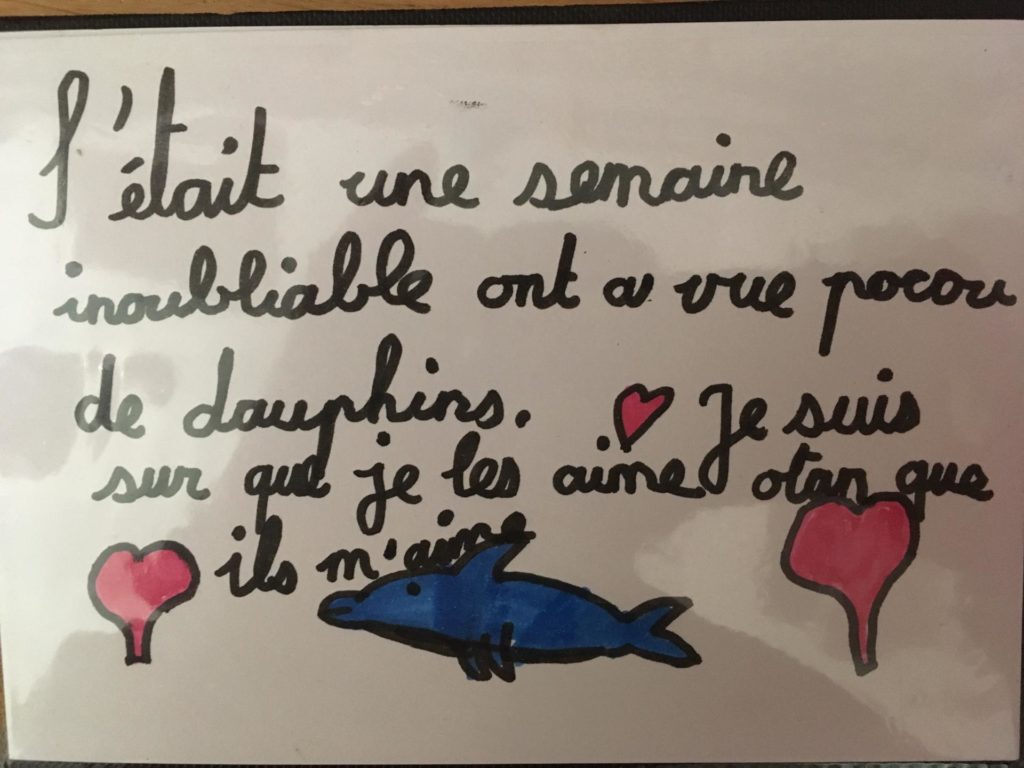 s'était une semaine
inoubliable ont a vue pocou
de dauphins. Je suis
sur que je les aime otan que
ils m'aime